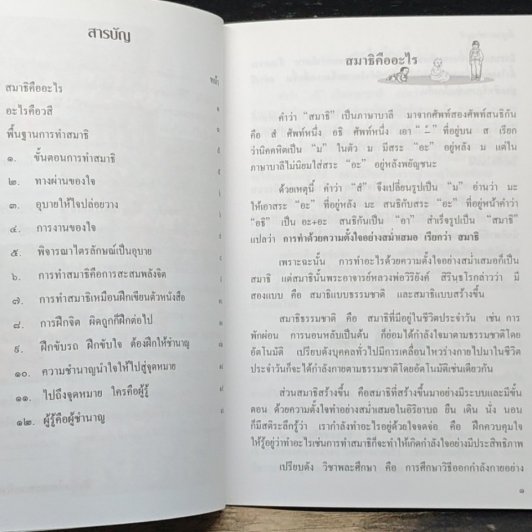 สารบัญ
หน้า
สมาธิคืออะไร
อะไรคือวสี
พื้นฐานการทำสมาธิ
๑. ขั้นตอนการทำสมาธิ
๒. ทางผ่านของใจ
๓. อุบายให้ใจปล่อยวาง
๔. การงานของใจ
๕. พิจารณาไตรลักษณ์เป็นอุบาย
๖. การทำสมาธิคือการสะสมพลังจิต
๗. การทำสมาธิเหมือนฝึกเขียนตัวหนังสือ
๘. การฝึกจิต ผิดถูกก็ฝึกต่อไป
๙. ฝึกขับรถ ฝึกขับใจ ต้องฝึกให้ชำนาญ
๑๐. ความชำนาญนำใจให้ไปสู่จุดหมาย
๑๑. ไปถึงจุดหมาย ใครคือผู้รู้
๑๒. ผู้รู้คือผู้ชำนาญ
สมาธิคืออะไร
คำว่า “สมาธิ” เป็นภาษาบาลี มาจากศัพท์สองศัพท์สนธิกัน
คือ สํ ศัพท์หนึ่ง อธิ ศัพท์หนึ่ง เอา ที่อยู่บน ส เรียก
ว่านิคคหิตเป็น “ม” ในตัว ม มีสระ “อะ” อยู่หลัง ม แต่ใน
ภาษาบาลีไม่นิยมใส่สระ “อะ” อยู่หลังพยัญชนะ
ด้วยเหตุนี้ คำว่า “สํ” จึงเปลี่ยนรูปเป็น “ม” อ่านว่า มะ
ให้เอาสระ “อะ” ที่อยู่หลัง มะ สนธิกับสระ “อะ” ที่อยู่หน้าคำว่า
“อธิ” เป็น อะ+อะ สนธิกันเป็น “อา” สำเร็จรูปเป็น “สมาธิ”
แปลว่า การทำด้วยความตั้งใจอย่างสม่ำเสมอ เรียกว่า สมาธิ
เพราะฉะนั้น การทำอะไรด้วยความตั้งใจอย่างสม่ำเสมอก็เป็น
สมาธิ แต่สมาธินั้นพระอาจารย์หลวงพ่อวิริยังค์ สิรินฺธโรกล่าวว่า มี
สองแบบ คือ สมาธิแบบธรรมชาติ และสมาธิแบบสร้างขึ้น
สมาธิธรรมชาติ คือ สมาธิที่มีอยู่ในชีวิตประจำวัน เช่น การ
พักผ่อน การนอนหลับเป็นต้น ก็ย่อมได้กำลังใจมาตามธรรมชาติโดย
อัตโนมัติ เปรียบดังบุคคลทั่วไปมีการเคลื่อนไหวร่างกายไปมาในชีวิต
ประจำวันก็จะได้กำลังกายตามธรรมชาติโดยอัตโนมัติเช่นเดียวกัน
ส่วนสมาธิสร้างขึ้น คือสมาธิที่สร้างขึ้นมาอย่างมีระบบและมีขั้น
ตอน ด้วยความตั้งใจทำอย่างสม่ำเสมอในอิริยาบถ ยืน เดิน นั่ง นอน
ก็มีสติระลึกรู้ว่า เรากำลังทำอะไรอยู่ด้วยใจจดจ่อ คือ ฝึกควบคุมใจ
ให้รู้อยู่ว่าทำอะไรเช่นการทำสมาธิก็จะทำให้เกิดกำลังใจอย่างมีประสิทธิภาพ
เปรียบดัง วิชาพละศึกษา คือ การศึกษาวิธีออกกำลังกายอย่าง
๑